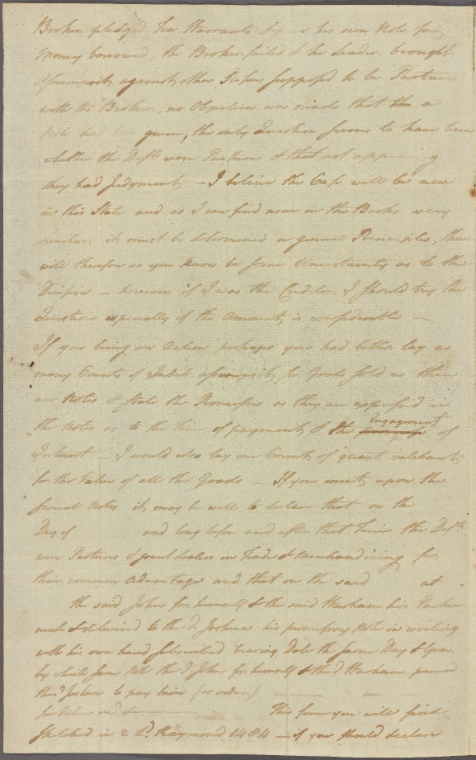 Broker pledged Tea Warrants & his own Note for
Money borrowed, the Broker failed & the Lender brought
Assumpsit against other Persons supposed to be Partners
with the Broker, no Objection was made that the a
Note had been given, the only Question seems to have been
whether the Defts were Partners & that not appearing
they had Judgment — I believe the Case will be new
in this State and as I can find none in the Books very
similar it must be determined on general Principles, there
will therefore as you know be some Uncertainty as to the
Decision — however if I was the Creditor I should try the
Question especially if the Amount is considerable —
If you bring an Action perhaps you had better lay as
many Counts of Indeb. assumpsit, for Goods sold as there
are Notes & State the Promises as they are expressed in
the notes as to the time of payment & the Engagement of
Interest — I would also lay our Counts of quant. valebant
for the Value of all the Goods — If you count upon the
several Notes it may be well to declare that on the
Day of and long before and after that Time the Defts
were Partners & joint dealers in Trade & Merchandizing for
their common Advantage and that on the said at
the said John for himself & the said Warham his Partner
made & delivered to the P. Joshua his promissory Note in writing
with his own hand subscribed bearing Date the same Day & Year
by which same Note the sd John for himself & the sd Warham promised
the sd Joshua to pay him (or order)
for Value recd This form you will find
sketched in 2 Ld. Raymond 1484 — if you should declare